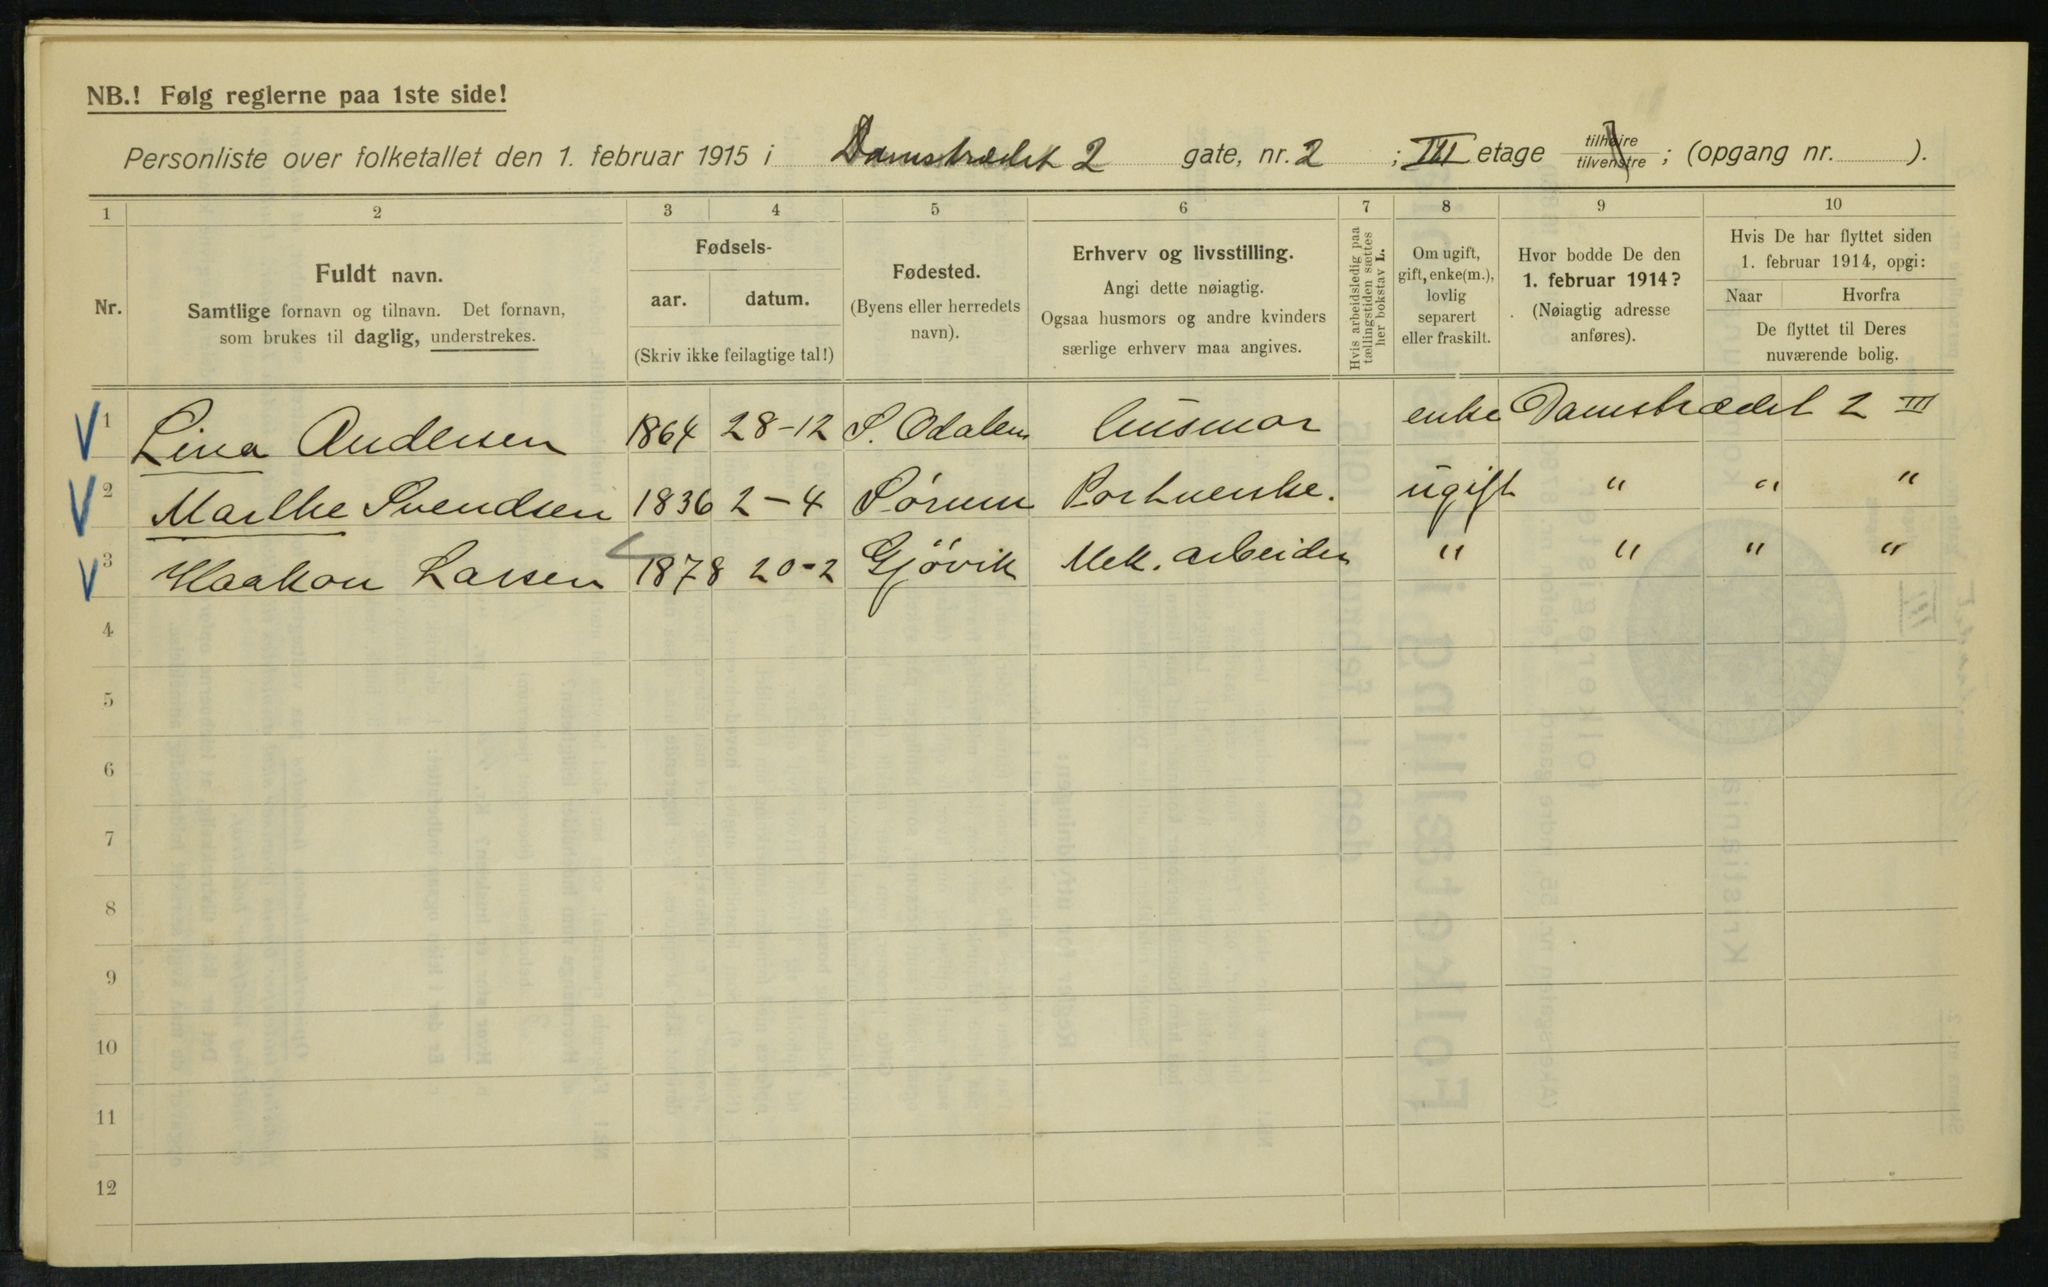 NB.! Følg reglerne paa 1ste side!
Personliste over folketallet den 1. februar 1915 i Damstrædet 2 gate, nr. 2 ; III etage tilhøire tilvenstre ; (opgang nr. ).
1 2 3 4 5 6 7 8 9 10
Nr.
Fuldt navn.
Samtlige fornavn og tilnavn. Det fornavn,
som brukes til daglig, understrekes.
Fødsels-
aar. datum.
(Skriv ikke feilagtige tal!)
Fødested.
(Byens eller herredets
navn).
Erhverv og livsstilling.
Angi dette nøiagtig.
Ogsaa husmors og andre kvinders
særlige erhverv maa angives.
Hvis arbeidsledig paa
tællingstiden sættes
her bokstav L.
Om ugift,
gift, enke(m.),
lovlig
separert
eller fraskilt.
Hvor bodde De den
1. februar 1914?
(Nøiagtig adresse
anføres).
Hvis De har flyttet siden
1. februar 1914, opgi:
Naar Hvorfra
De flyttet til Deres
nuværende bolig.
1 Lina Andersen 1864 28-12 S. Odalen husmor enke Damstrædet 2 III
2 Marthe Svendsen 1836 2-4 Sørum ugift " " "
3 Haakon Larsen 1878 20-2 Gjövik Mek. arbeider " " " "
4
5
6
7
8
9
10
11
12